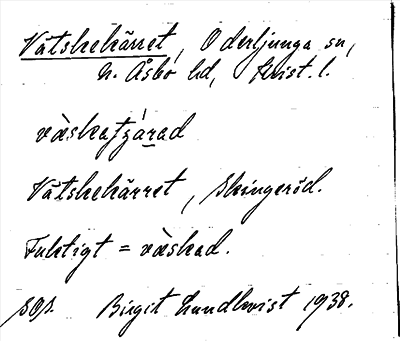 Vätskekärret, Oderljunga sn,
N. Åsbo hd, Krist. l.
väskatjárad
Vätskekärret, Skingeröd.
Fuktigt = väskad.
SOS. Birgit Lundkvist 1938.